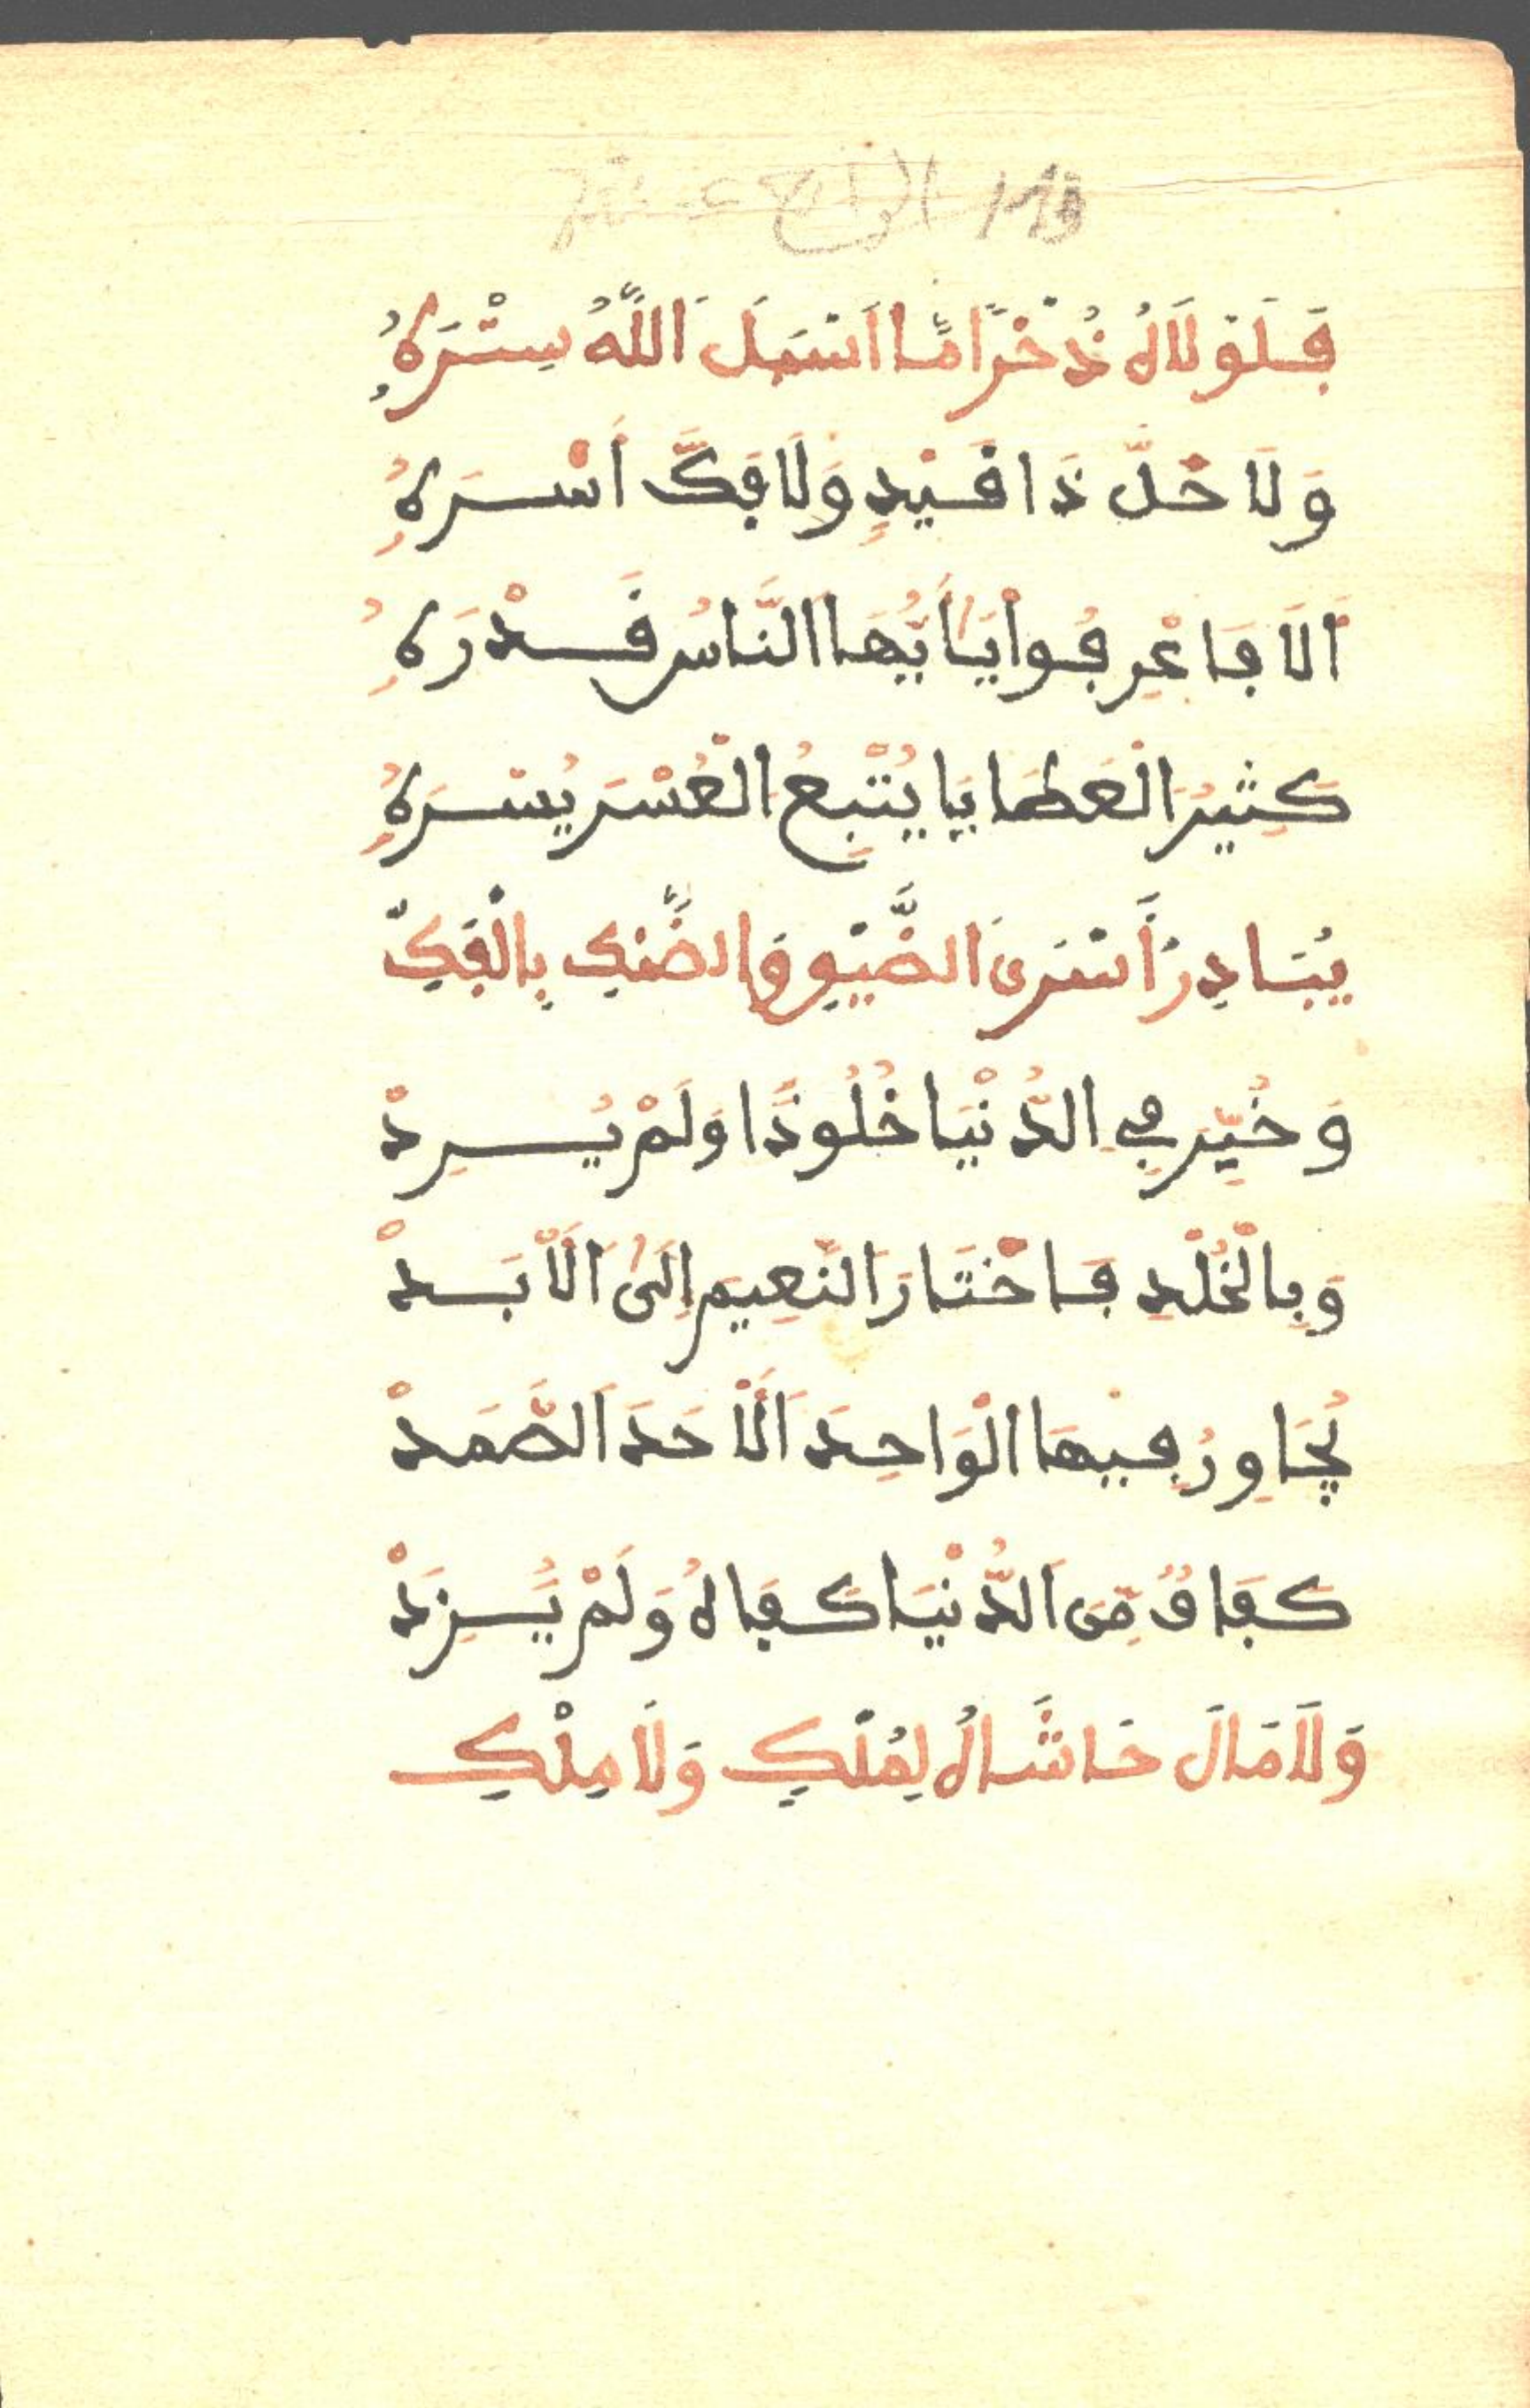 فَلَوْلَاهُ ذُخْرًا مَّا اَسْبَلَ اَللَّهُ سِتْرَهُ
وَلَا حَلَّ ذَا قَيْدٍ وَلَا فَكَّ أَسْرَهُ
اَلَا فَاعْرِفُواْ يَا أَيُّهَا اَلنَّاسُ قَدْرَهُ
كَثِيرَ الْعَطَايَا يُتْبِعُ الْعُسْرَ يُسْرَهُ
يُبَادِرُ أَسْرَى اَلضَّيْقِ وَالضَّنْكِ بِالْفَكِّ
وَخُيِّرَ فِي الدُّنْيَا خُلُودًا وَلَمْ يُرِدْ
وَبِالْخُلْدِ فَاخْتَارَ النَّعِيمَ إِلَى اَلْأَبَدْ
يُجَاوِرُ فِيهَا الْوَاحِدَ اَلْأَحَدَ اَلصَّمَدْ
كَفَافٌ مِّنَ اَلدُّنْيَا كَفَاهُ وَلَمْ يَزِدْ
وَلَا مَالَ حَاشَاهُ لِمُلْكٍ وَلَا مِلْكِ